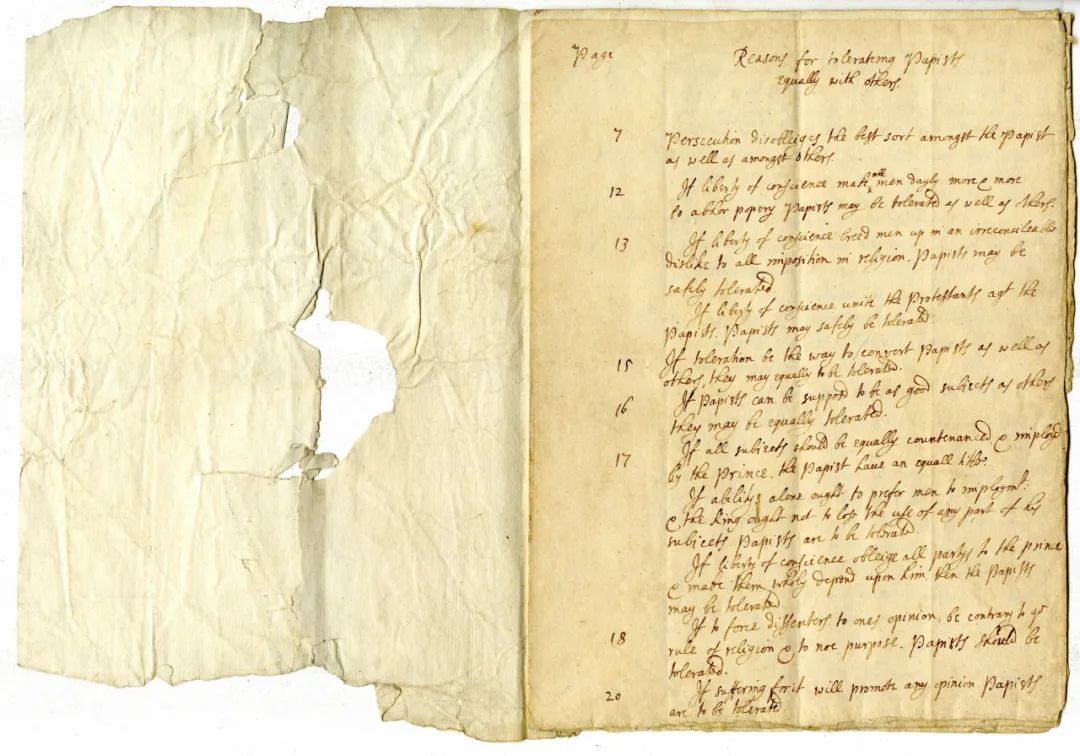 Page
Reasons for tolerateing Papists
equally with others.
7 Persecution disobleiges the best sort amongst the Papist
as well as amongst others
12 If liberty of conscience make all men dayly more & more
to abhor popery Papists may be tolerated as well as others.
13 If liberty of conscience breed men up in an irreconcileable
dislike to all imposition in religion. Papists may be
safely tolerated
If liberty of conscience unite the Protestants agt the
Papists. Papists may safely be tolerated.
15 If toleration be the way to convert Papists as well as
others, they may equally to be tolerated.
16 If Papists can be supposd to be as good subiects as others
they may be equally tolerated.
17 If all subiects should be equally countenanced & imployd
by the Prince. the Papist have an equall title.
If abilitys alone ought to prefer men to imploymt:
& the King ought not to loss the use of any part of his
subiects Papists are to be tolerated.
If liberty of conscience obleige all partys to the prince
& make them wholy depend upon him. then the Papists
may be tolerated
18 If to force dissenters to ones opinion, be contrary to ye
rule of religion & to noe purpose. Papists should be
tolerated.
20 If suffering for it will promote any opinion. Papists
are to be tolerated